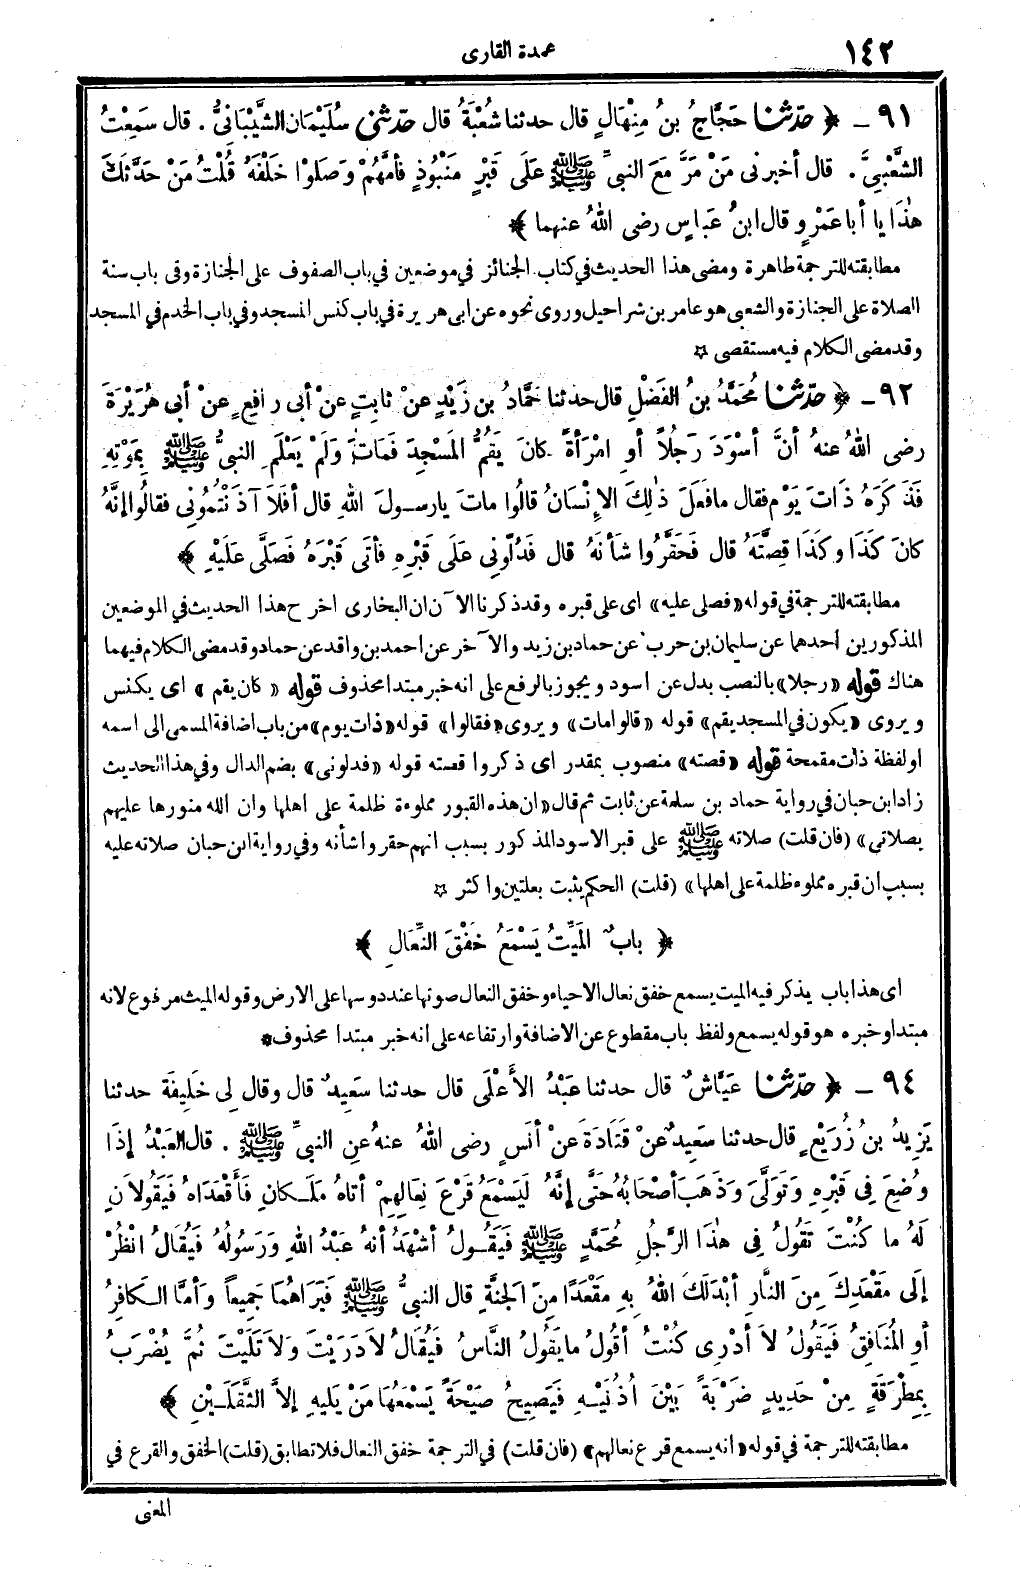 ١٤٢
عمدة القارى
٩١ _ ﴿ حَدَّثنا حَجَّاجُ بنُ مِنْهَالٍ قال حدثنا شُعْبَةُ قال حدّثنى سُلَيْمان الشَّيْبَانىُّ . قال سَمِعْتُ
الشَّعْبىَّ . قال أخبرنى مَنْ مَرَّ مَعَ النبىِّ ﷺ عَلَى قَبْرٍ مَنْبُوذٍ فأمَّهُمْ وَصَلوْا خَلْفَهُ قُلْتُ مَنْ حَدَّثَكَ
هٰذَا يا أبا عَمْرٍو قال ابنُ عَبَّاسٍ رضى اللهُ عنهما ﴾
مطابقته للترجمة ظاهرة ومضى هذا الحديث في كتاب الجنائز في موضعين في باب الصفوف على الجنازة وفى باب سنة
الصلاة على الجنازة والشعبى هو عامر بن شراحيل وروى نحوه عن ابى هريرة في باب كنس المسجد وفي باب الخدم في المسجد
وقد مضى الكلام فيه مستقصى ☆
٩٢ _ ﴿ حَدَّثنا مُحَمَّدُ بنُ الفَضْلِ قال حدثنا حَمَّادُ بن زَيْدٍ عنْ ثابتٍ عنْ أبى رافِعٍ عنْ أبى هُرَيْرَةَ
رضى اللهُ عنهُ أنَّ أسْوَدَ رَجُلاً أوِ امْرأةً كانَ يَقُمُّ المَسْجِدَ فَمَاتَ وَلَمْ يَعْلَمِ النبىُّ ﷺ بِمَوْتِهِ
فَذَكَرَهُ ذَاتَ يَوْمٍ فقال ما فَعَلَ ذٰلِكَ الإنْسَانُ قالُوا ماتَ يارسولَ اللهِ قال أفَلاَ آذَنْتُمُونِى فقالُوا إنَّهُ
كانَ كَذَا وكَذَا قِصَّتَهُ قال فَحَقَّرُوا شَأنَهُ قال فَدُلُّونِى عَلَى قَبْرِهِ فأتَى قَبْرَهُ فَصَلَّى عَلَيْهِ ﴾
مطابقته للترجمة في قوله «فصلى عليه» اى على قبره وقد ذكرنا الآن ان البخارى اخرج هذا الحديث في الموضعين
المذكورين احدهما عن سليمان بن حرب عن حماد بن زيد والآخر عن احمد بن واقد عن حماد وقد مضى الكلام فيهما
هناك قوله «رجلا» بالنصب بدل عن اسود ويجوز بالرفع على انه خبر مبتدا محذوف قوله « كان يقم » اى يكنس
ويروى «يكون في المسجد يقم» قوله «قالوا مات» ويروى «فقالوا» قوله «ذات يوم» من باب اضافة المسمى الى اسمه
او لفظة ذات مقمحة قوله «قصته» منصوب بمقدر اى ذكروا قصته قوله «فدلونى» بضم الدال وفي هذا الحديث
زاد ابن حبان في رواية حماد بن سلمة عن ثابت ثم قال «ان هذه القبور مملوءة ظلمة على اهلها وان الله منورها عليهم
بصلاتى» (فان قلت) صلاته ﷺ على قبر الاسود المذكور بسبب انهم حقروا شأنه وفي رواية ابن حبان صلاته عليه
بسبب ان قبره مملوء ظلمة على اهلها» (قلت) الحكم يثبت بعلتين واكثر ☆
﴿ بابٌ المَيِّتُ يَسْمَعُ خَفْقَ النِّعَالِ ﴾
اى هذا باب يذكر فيه الميت يسمع خفق نعال الاحياء وخفق النعال صوتها عند دوسها على الارض وقوله الميت مرفوع لانه
مبتدا وخبره هو قوله يسمع ولفظ باب مقطوع عن الاضافة وارتفاعه على انه خبر مبتدا محذوف *
٩٤ _ ﴿ حَدَّثنا عَيَّاشٌ قال حدثنا عَبْدُ الأَعْلَى قال حدثنا سَعِيدٌ قال وقال لِى خَلِيفَة حدثنا
يَزِيدُ بنُ زُرَيْعٍ قال حدثنا سَعِيدٌ عنْ قَتَادَةَ عنْ أنَسٍ رضى اللهُ عنهُ عنِ النبىِّ ﷺ . قال العَبْدُ إذَا
وُضِعَ فِى قَبْرِهِ وَتَوَلَّى وَذَهَبَ أصْحَابُهُ حَتَّى إنَّهُ لَيَسْمَعُ قَرْعَ نِعَالِهِمْ أتاهُ مَلَكانِ فَأَقْعَدَاهُ فَيَقُولاَنِ
لَهُ ما كُنْتَ تَقُولُ فِى هٰذَا الرَّجُلِ مُحَمَّدٍ ﷺ فَيَقُولُ أشْهَدُ أنهُ عَبْدُ اللهِ وَرَسُولُهُ فَيُقَالُ انْظُرْ
إلَى مَقْعَدِكَ مِنَ النَّارِ أبْدَلَكَ اللهُ بِهِ مَقْعَدًا مِنَ الجَنَّةِ قال النبىُّ ﷺ فَيَرَاهُمَا جَمِيعاً وَأمَّا الكافِرُ
أوِ المُنَافِقُ فَيَقُولُ لاَ أدْرِى كُنْتُ أقُولُ ما يَقُولُ النَّاسُ فَيُقَالُ لاَ دَرَيْتَ وَلاَ تَلَيْتَ ثُمَّ يُضْرَبُ
بِمِطْرَقَةٍ مِنْ حَدِيدٍ ضَرْبَةً بَيْنَ أُذُنَيْهِ فَيَصِيحُ صَيْحَةً يَسْمَعُهَا مَنْ يَلِيهِ إلاَّ الثَّقَلَيْنِ ﴾
مطابقته للترجمة في قوله «انه يسمع قرع نعالهم» (فان قلت) في الترجمة خفق النعال فلا تطابق (قلت) الخفق والقرع في
المعنى